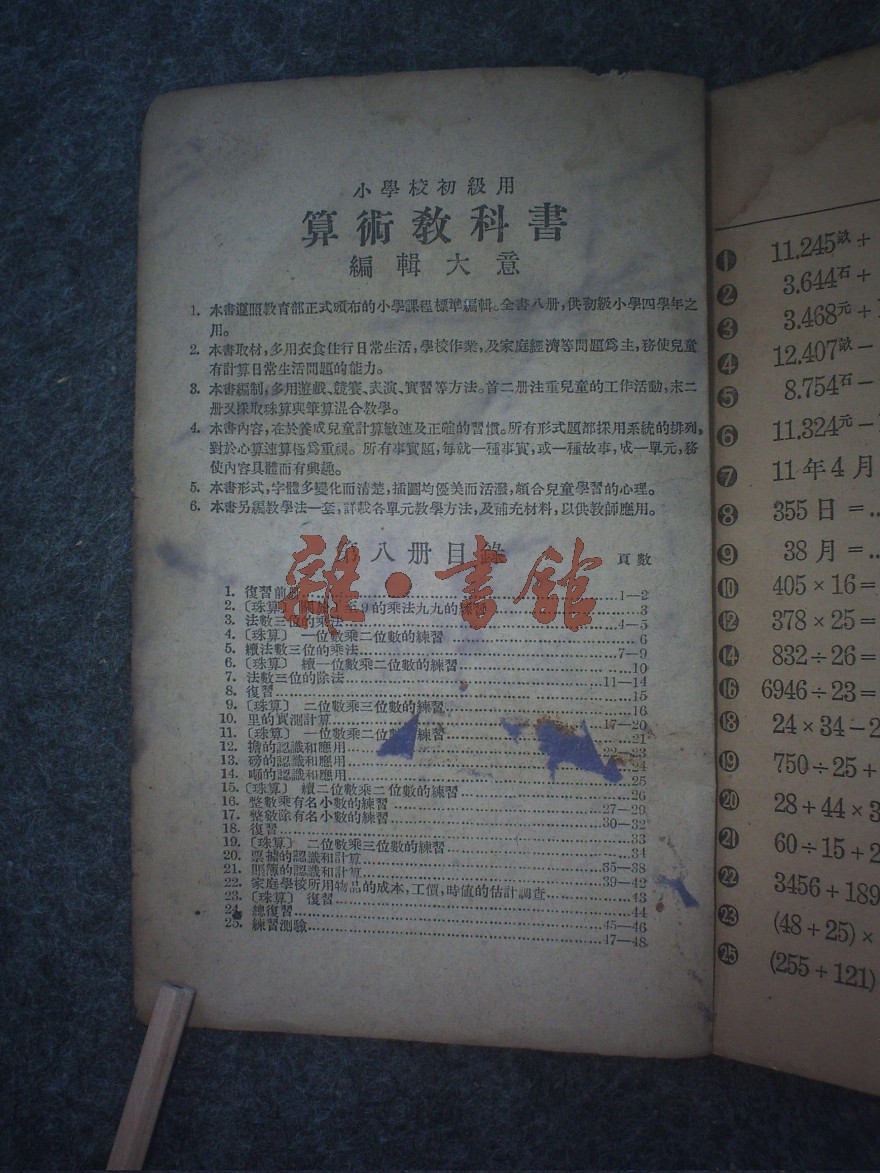 小學校初級用
算術敎科書
編輯大意
1. 本書遵照敎育部正式頒布的小學課程標準編輯。全書八册,供初級小學四學年之
用。
2. 本書取材,多用衣食住行日常生活,學校作業,及家庭經濟等問題爲主,務使兒童
有計算日常生活問題的能力。
3. 本書編制,多用遊戲、競賽、表演、實習等方法。首二册注重兒童的工作活動,末二
册又採取珠算與筆算混合敎學。
4. 本書內容,在於養成兒童計算敏速及正確的習慣。所有形式題都採用系統的排列,
對於心算速算極爲重視。所有事實題,每就一種事實,或一種故事,成一單元,務
使內容具體而有興趣。
5. 本書形式,字體多變化而清楚,插圖均優美而活潑,頗合兒童學習的心理。
6. 本書另編敎學法一套,詳載各單元敎學方法,及補充材料,以供敎師應用。
第八册目錄
頁數
雜·書館
1. 復習前册 1—2
2. 〔珠算〕 至9的乘法九九的練習 3
3. 法數三位的乘法 4—5
4. 〔珠算〕 一位數乘二位數的練習 6
5. 續法數三位的乘法 7—9
6. 〔珠算〕 續一位數乘二位數的練習 10
7. 法數三位的除法 11—14
8. 復習 15
9. 〔珠算〕 二位數乘三位數的練習 16
10. 里的實測計算 17—20
11. 〔珠算〕 一位數乘二位數的練習 21
12. 擔的認識和應用 22—23
13. 磅的認識和應用 24
14. 噸的認識和應用 25
15. 〔珠算〕 續二位數乘二位數的練習 26
16. 整數乘有名小數的練習 27—29
17. 整數除有名小數的練習 30—32
18. 復習 33
19. 〔珠算〕 二位數乘三位數的練習 34
20. 票據的認識和計算 35—38
21. 賬簿的認識和計算 39—42
22. 家庭學校所用物品的成本,工價,時値的估計調查 43
23. 〔珠算〕 復習 44
24. 總復習 45—46
25. 練習測驗 47—48
❶ 11.245畝 +
❷ 3.644石 +
❸ 3.468元 +
❹ 12.407畝 −
❺ 8.754石 −
❻ 11.324元 −
❼ 11年4月
❽ 355日 =
❾ 38月 =
❿ 405 × 16 =
⓬ 378 × 25 =
⓮ 832 ÷ 26 =
⓰ 6946 ÷ 23 =
⓲ 24 × 34 − 2
⓳ 750 ÷ 25 +
⓴ 28 + 44 × 3
21 60 ÷ 15 + 2
22 3456 + 189
23 (48 + 25) ×
25 (255 + 121)